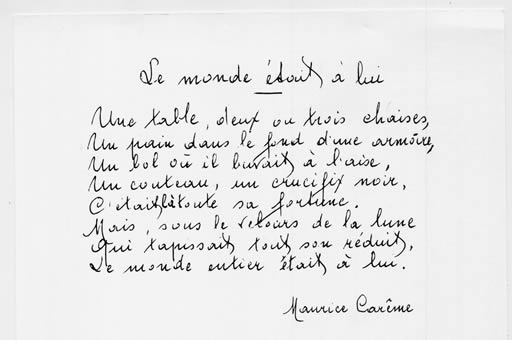 Le monde était à lui
Une table, deux ou trois chaises,
Un pain dans le fond d'une armoire,
Un bol où il buvait à l'aise,
Un couteau, un crucifix noir,
C'était là toute sa fortune.
Mais, sous le velours de la lune
Qui tapissait tout son réduit,
Le monde entier était à lui.
Maurice Carême